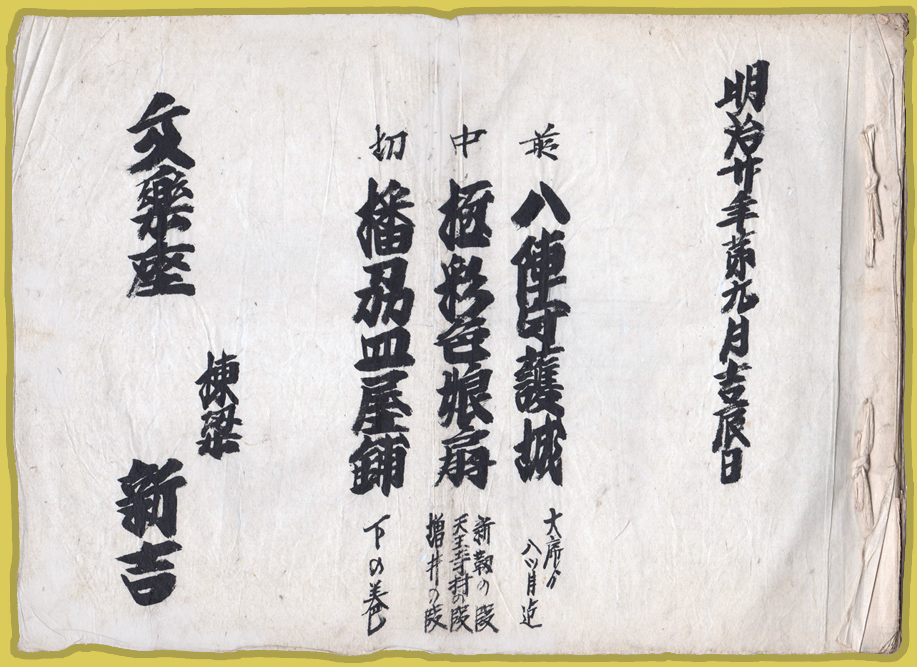 明治廿年第九月吉辰日
前 八陣守護城 大序ゟ
八ツ目迄
中 極彩色娘扇 新靱の段
天王寺村の段
増井の段
切 播州皿屋鋪 下の巻
棟梁
文樂座 新吉